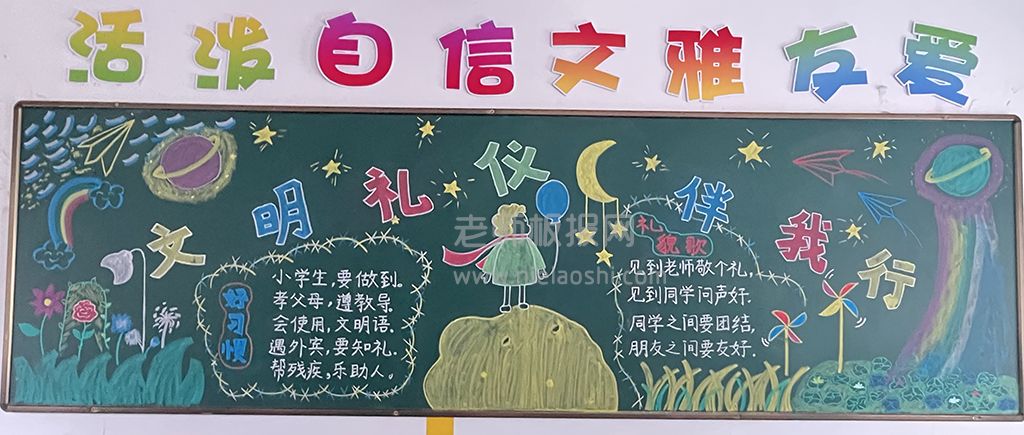 活泼自信文雅友爱
文明礼仪伴我行
好习惯
小学生,要做到。
孝父母,遵教导.
会使用,文明语.
遇外宾,要知礼.
帮残疾,乐助人。
礼貌歌
见到老师敬个礼,
见到同学问声好.
同学之间要团结,
朋友之间要友好.